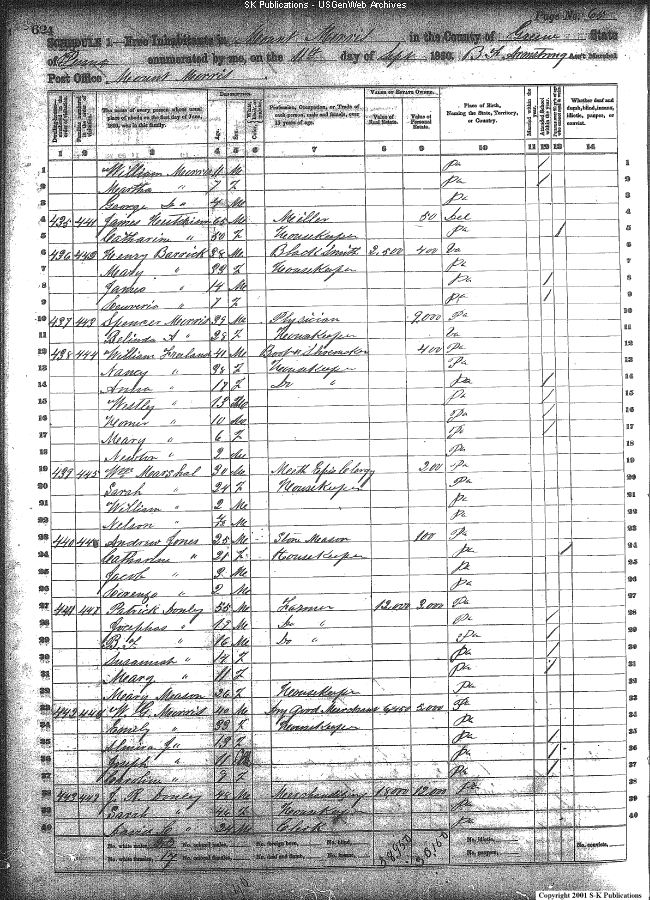 SK Publications - USGenWeb Archives
Page No. 68
624
SCHEDULE 1.—Free Inhabitants in Mount Morris in the County of Greene State
of Penna enumerated by me, on the 11th day of Sept 1860. B. F. Armstrong Ass't Marshal
Post Office Mount Morris
The name of every person whose usual place of abode on the first day of June, 1860, was in this family.
DESCRIPTION.
Age.
Sex.
Profession, Occupation, or Trade of each person, male and female, over 15 years of age.
VALUE OF ESTATE OWNED.
Value of Real Estate.
Value of Personal Estate.
Place of Birth, Naming the State, Territory, or Country.
Married within the year.
Attended School within the year.
Whether deaf and dumb, blind, insane, idiotic, pauper, or convict.
1 2 3 4 5 6 7 8 9 10 11 12 13 14
1 William Morris 11 M Pa / 1
2 Martha " 7 F Pa / 2
3 George " 4 M Pa 3
4 435 441 James 65 M Miller 50 Del 4
5 Catharine " 50 F Housekeeper Pa / 5
6 436 442 Henry Barrick 38 M Black Smith 2,500 400 6
7 Mary " 39 F Housekeeper Pa 7
8 James " 14 M Pa / 8
9 " 7 F Pa / 9
10 437 443 Spencer Morris 39 M Physician 2,000 Pa 10
11 Belinda A " 28 F Housekeeper 11
12 438 444 William 41 M Boot & Shoemaker 400 Pa 12
13 Nancy " 38 F Housekeeper Pa 13
14 Anna " 17 F Do " Pa / 14
15 Westly " 13 M Pa / 15
16 Homer " 10 M Pa / 16
17 Mary " 6 F Pa / 17
18 Newton " 2 M Pa 18
19 439 445 Wm Marshal 30 M Meth Epis Clergy 200 Pa 19
20 Sarah " 24 F Housekeeper Pa 20
21 William " 2 M Pa 21
22 Nelson " M Pa 22
23 440 446 Andrew Jones 25 M Stone Mason 100 Pa 23
24 Catharine " 21 F Housekeeper Pa / 24
25 Jacob " 3 M Pa 25
26 Lorenzo " 2 M Pa 26
27 441 447 Patrick Donley 55 M Farmer 12,000 2,000 Pa 27
28 Josephas " 17 M Do " Pa / 28
29 B. F. " 16 M Do " Pa / 29
30 Susannah " 14 F Pa / 30
31 Mary " 11 F Pa / 31
32 Mary Mason 26 F Housekeeper Pa 32
33 442 448 W. G. Morris 40 M Dry Good Merchant 6,450 2,000 Pa 33
34 Emily " 33 F Housekeeper Pa 34
35 Almira J " 13 F Pa / 35
36 Joseph " 11 M Pa / 36
37 Caroline " 9 F Pa / 37
38 443 449 J. R. Donley 48 M Merchandling 18,000 12,000 Pa 38
39 Sarah " 46 F Housekeeper Pa 39
40 " 24 M Clerk Pa 40
No. white males, No. colored males, No. foreign born, No. blind, No. idiotic, No. convicts,
No. white females, 17 No. colored females, No. deaf and dumb, No. insane, No. paupers,
38,950
Copyright 2001 S-K Publications